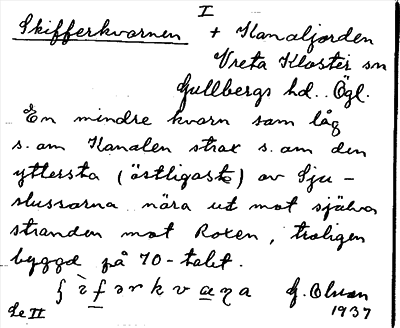 I
Skifferkvarnen + Kanaljorden
Vreta Kloster sn
Gullbergs hd. Ögl.
En mindre kvarn som låg
s. om Kanalen strax s. om den
yttersta (östligaste) av Sju-
slussarna nära ut mot själva
stranden mot Roxen, troligen
byggd på 70-talet.
ʃ ì f ə r k v a ɳ a G. Olson
Se II 1937